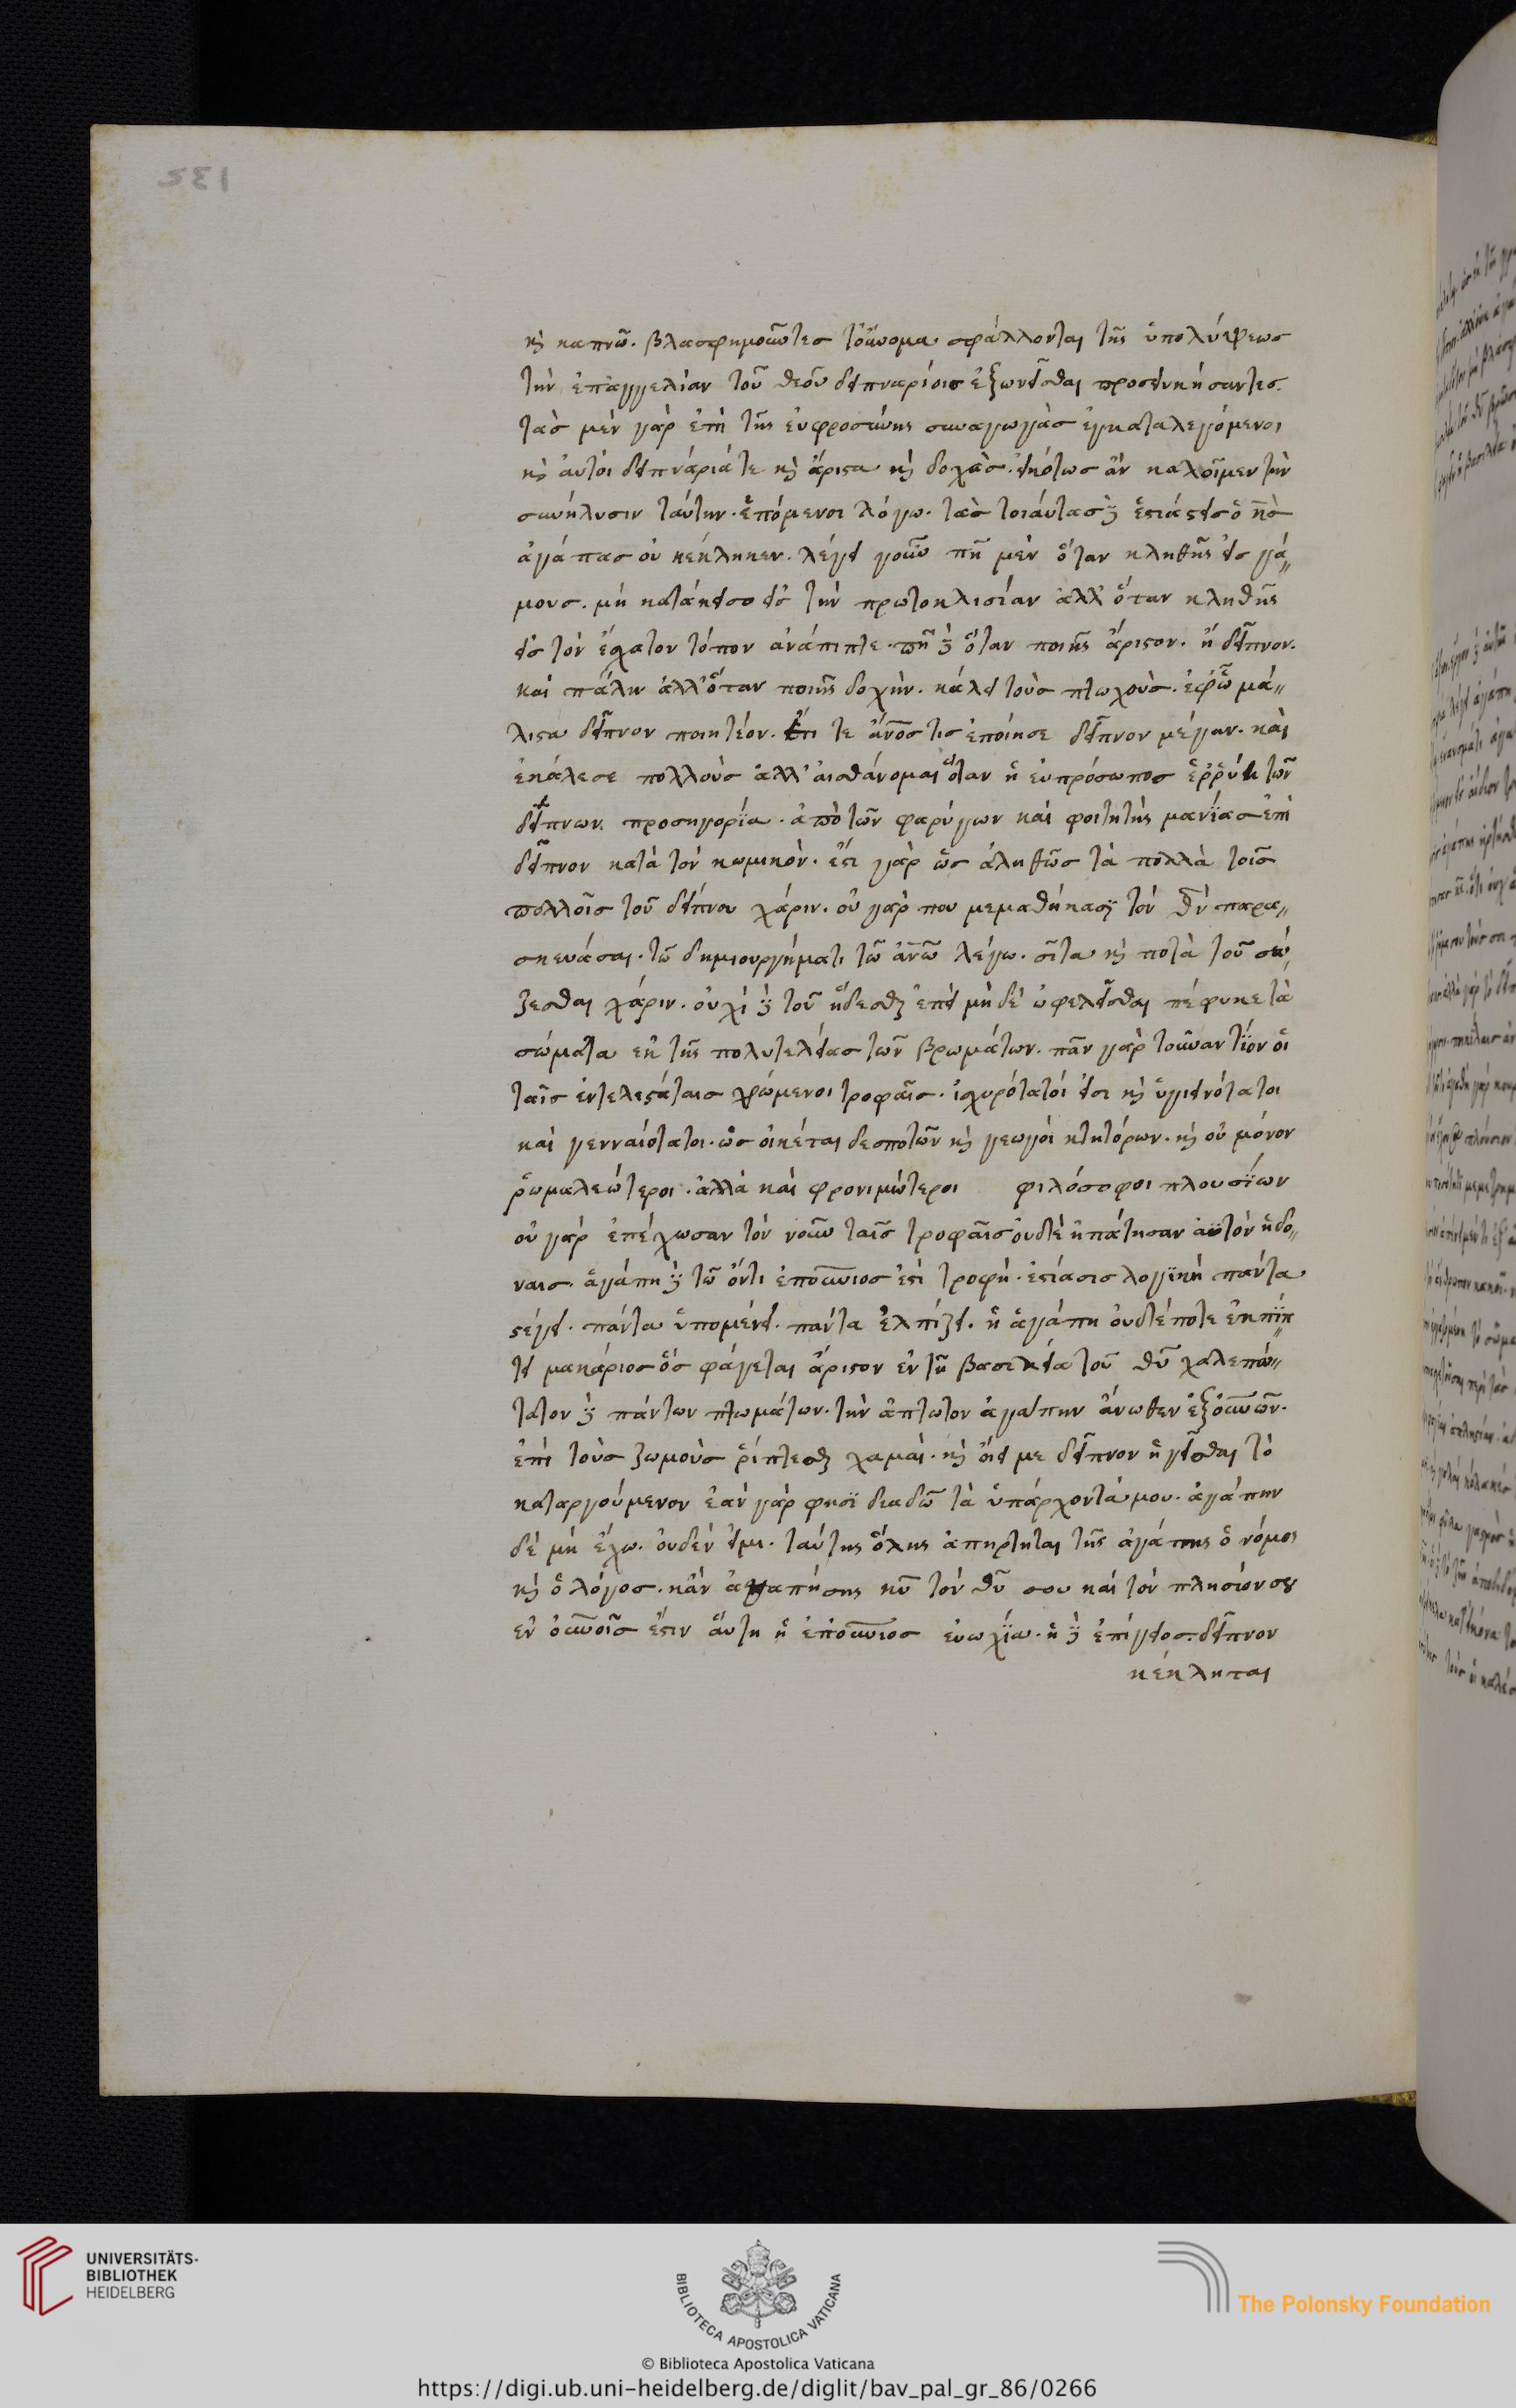 καὶ καπνῶ. βλασφημοῦντες τοὔνομα σφάλλονται τῆς ὑπολύψεως
τὴν ἐπαγγελίαν τοῦ θεοῦ δειπναρίοις ἐξωνεῖσθαι προσδοκήσαντες.
τὰς μὲν γὰρ ἐπὶ τῆς εὐφροσύνης συναγωγὰς ἐγκαταλεγόμενοι
καὶ αὐτοὶ δειπνάριά τε καὶ ἄριστα καὶ δοχὰς. εἰκότως ἂν καλοῖμεν τὴν
συνήλυσιν ταύτην. ἑπόμενοι λόγω. τὰς τοιαύτας δὲ ἑστιάσεις ὁ κς̄
ἀγάπας οὐ κέκληκεν. λέγει γοῦν πῆ μὲν ὅταν κληθῆς εἰς γά-
μους. μὴ κατάκεισο εἰς τὴν πρωτοκλισίαν ἀλλ' ὅταν κληθῆς
εἰς τὸν ἔσχατον τόπον ἀνάπιπτε. πῆ δὲ ὅταν ποιῆς ἄριστον. ἢ δεῖπνον.
καὶ πάλιν ἀλλ' ὅταν ποιῆς δοχὴν. κάλει τοὺς πτωχοὺς. ἐφ' ὧ μά-
λιστα δεῖπνον ποιητέον. ἔτι τε ἄνος̄ τις ἐποίησε δεῖπνον μέγαν. καὶ
ἐκάλεσε πολλοὺς ἀλλ' αἰσθάνομαι ὅταν ἡ εὐπρόσωπος ἐρρύη τῶν
δείπνων προσηγορία. ἀπὸ τῶν φαρύγων καὶ φοιτητὴς μανίας ἐπὶ
δεῖπνον κατὰ τὸν κωμικὸν. ἔστι γὰρ ὡς ἀληθῶς τὰ πολλὰ τοῖς
πολλοῖς τοῦ δείπνου χάριν. οὐ γὰρ που μεμαθήκασι τὸν θν̄ παρα-
σκευάσαι. τῶ δημιουργήματι τῶ ἀνω̄ λέγω. σῖτα καὶ ποτὰ τοῦ σώ-
ζεσθαι χάριν. οὐχὶ δὲ τοῦ ἥδεσθαι ἐπεὶ μὴ δὲ ὠφελεῖσθαι πέφυκε τὰ
σώματα ἐκ τῆς πολυτελείας τῶν βρωμάτων. πᾶν γὰρ τοὐναντίον οἱ
ταῖς εὐτελεστάταις χρώμενοι τροφαῖς. ἰσχυρότατοί εἰσι καὶ ὑγιεινότατοι
καὶ γενναιότατοι. ὡς οἰκέται δεσποτῶν καὶ γεωργοὶ κτητόρων. καὶ οὐ μόνον
ῥωμαλεώτεροι. ἀλλὰ καὶ φρονιμώτεροι φιλόσοφοι πλουσίων
οὐ γὰρ ἐπέχωσαν τὸν νοῦν ταῖς τροφαῖς οὐδὲ ἠπάτησαν αὐτὸν ἡδο-
ναις. ἀγάπη δὲ τῶ ὄντι ἐπουράνιος ἐστὶ τροφὴ. ἑστίασις λογικὴ πάντα
στέγει. πάντα ὑπομένει. πάντα ἐλπίζει. ἡ ἀγάπη οὐδέποτε ἐκπίπ-
τει μακάριος ὃς φάγεται ἄριστον ἐν τῆ βασιλεία τοῦ θῡ χαλεπώ-
τατον δὲ πάντων πτωμάτων. τὴν ἄπτωτον ἀγάπην ἄνωθεν ἐξ οὐνῶν.
ἐπὶ τοὺς ζωμοὺς ῥίπτεσθαι χαμαὶ. καὶ οἴει με δεῖπνον ἡγεῖσθαι τὸ
καταργούμενον ἐὰν γὰρ φησὶ διαδῶ τὰ ὑπάρχοντά μου. ἀγάπην
δὲ μὴ ἔχω. οὐδέν εἰμι. ταύτης ὅλης ἀπήρτηται τῆς ἀγάπης ὁ νόμος
καὶ ὁ λόγος. κἂν ἀγαπήσης κν̄ τὸν θν̄ σου καὶ τὸν πλησίον σου
ἐν οὐνοῖς ἐστιν αὕτη ἡ ἐπουράνιος εὐωχία. ἡ δὲ ἐπίγειος. δεῖπνον
κέκληται
UNIVERSITÄTS-
BIBLIOTHEK
HEIDELBERG
BIBLIOTECA APOSTOLICA VATICANA
The Polonsky Foundation
© Biblioteca Apostolica Vaticana
https://digi.ub.uni-heidelberg.de/diglit/bav_pal_gr_86/0266